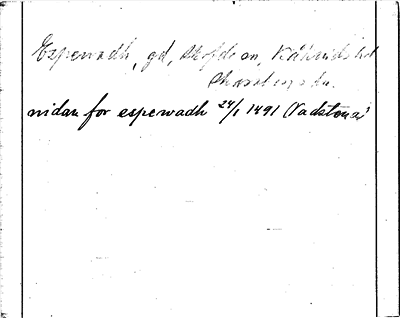 Espewadh, gd, Skofde sn, Kåkinds hd
Skaraborgs län.
nidan for espewadh 24/1 1491 (Vadstena)